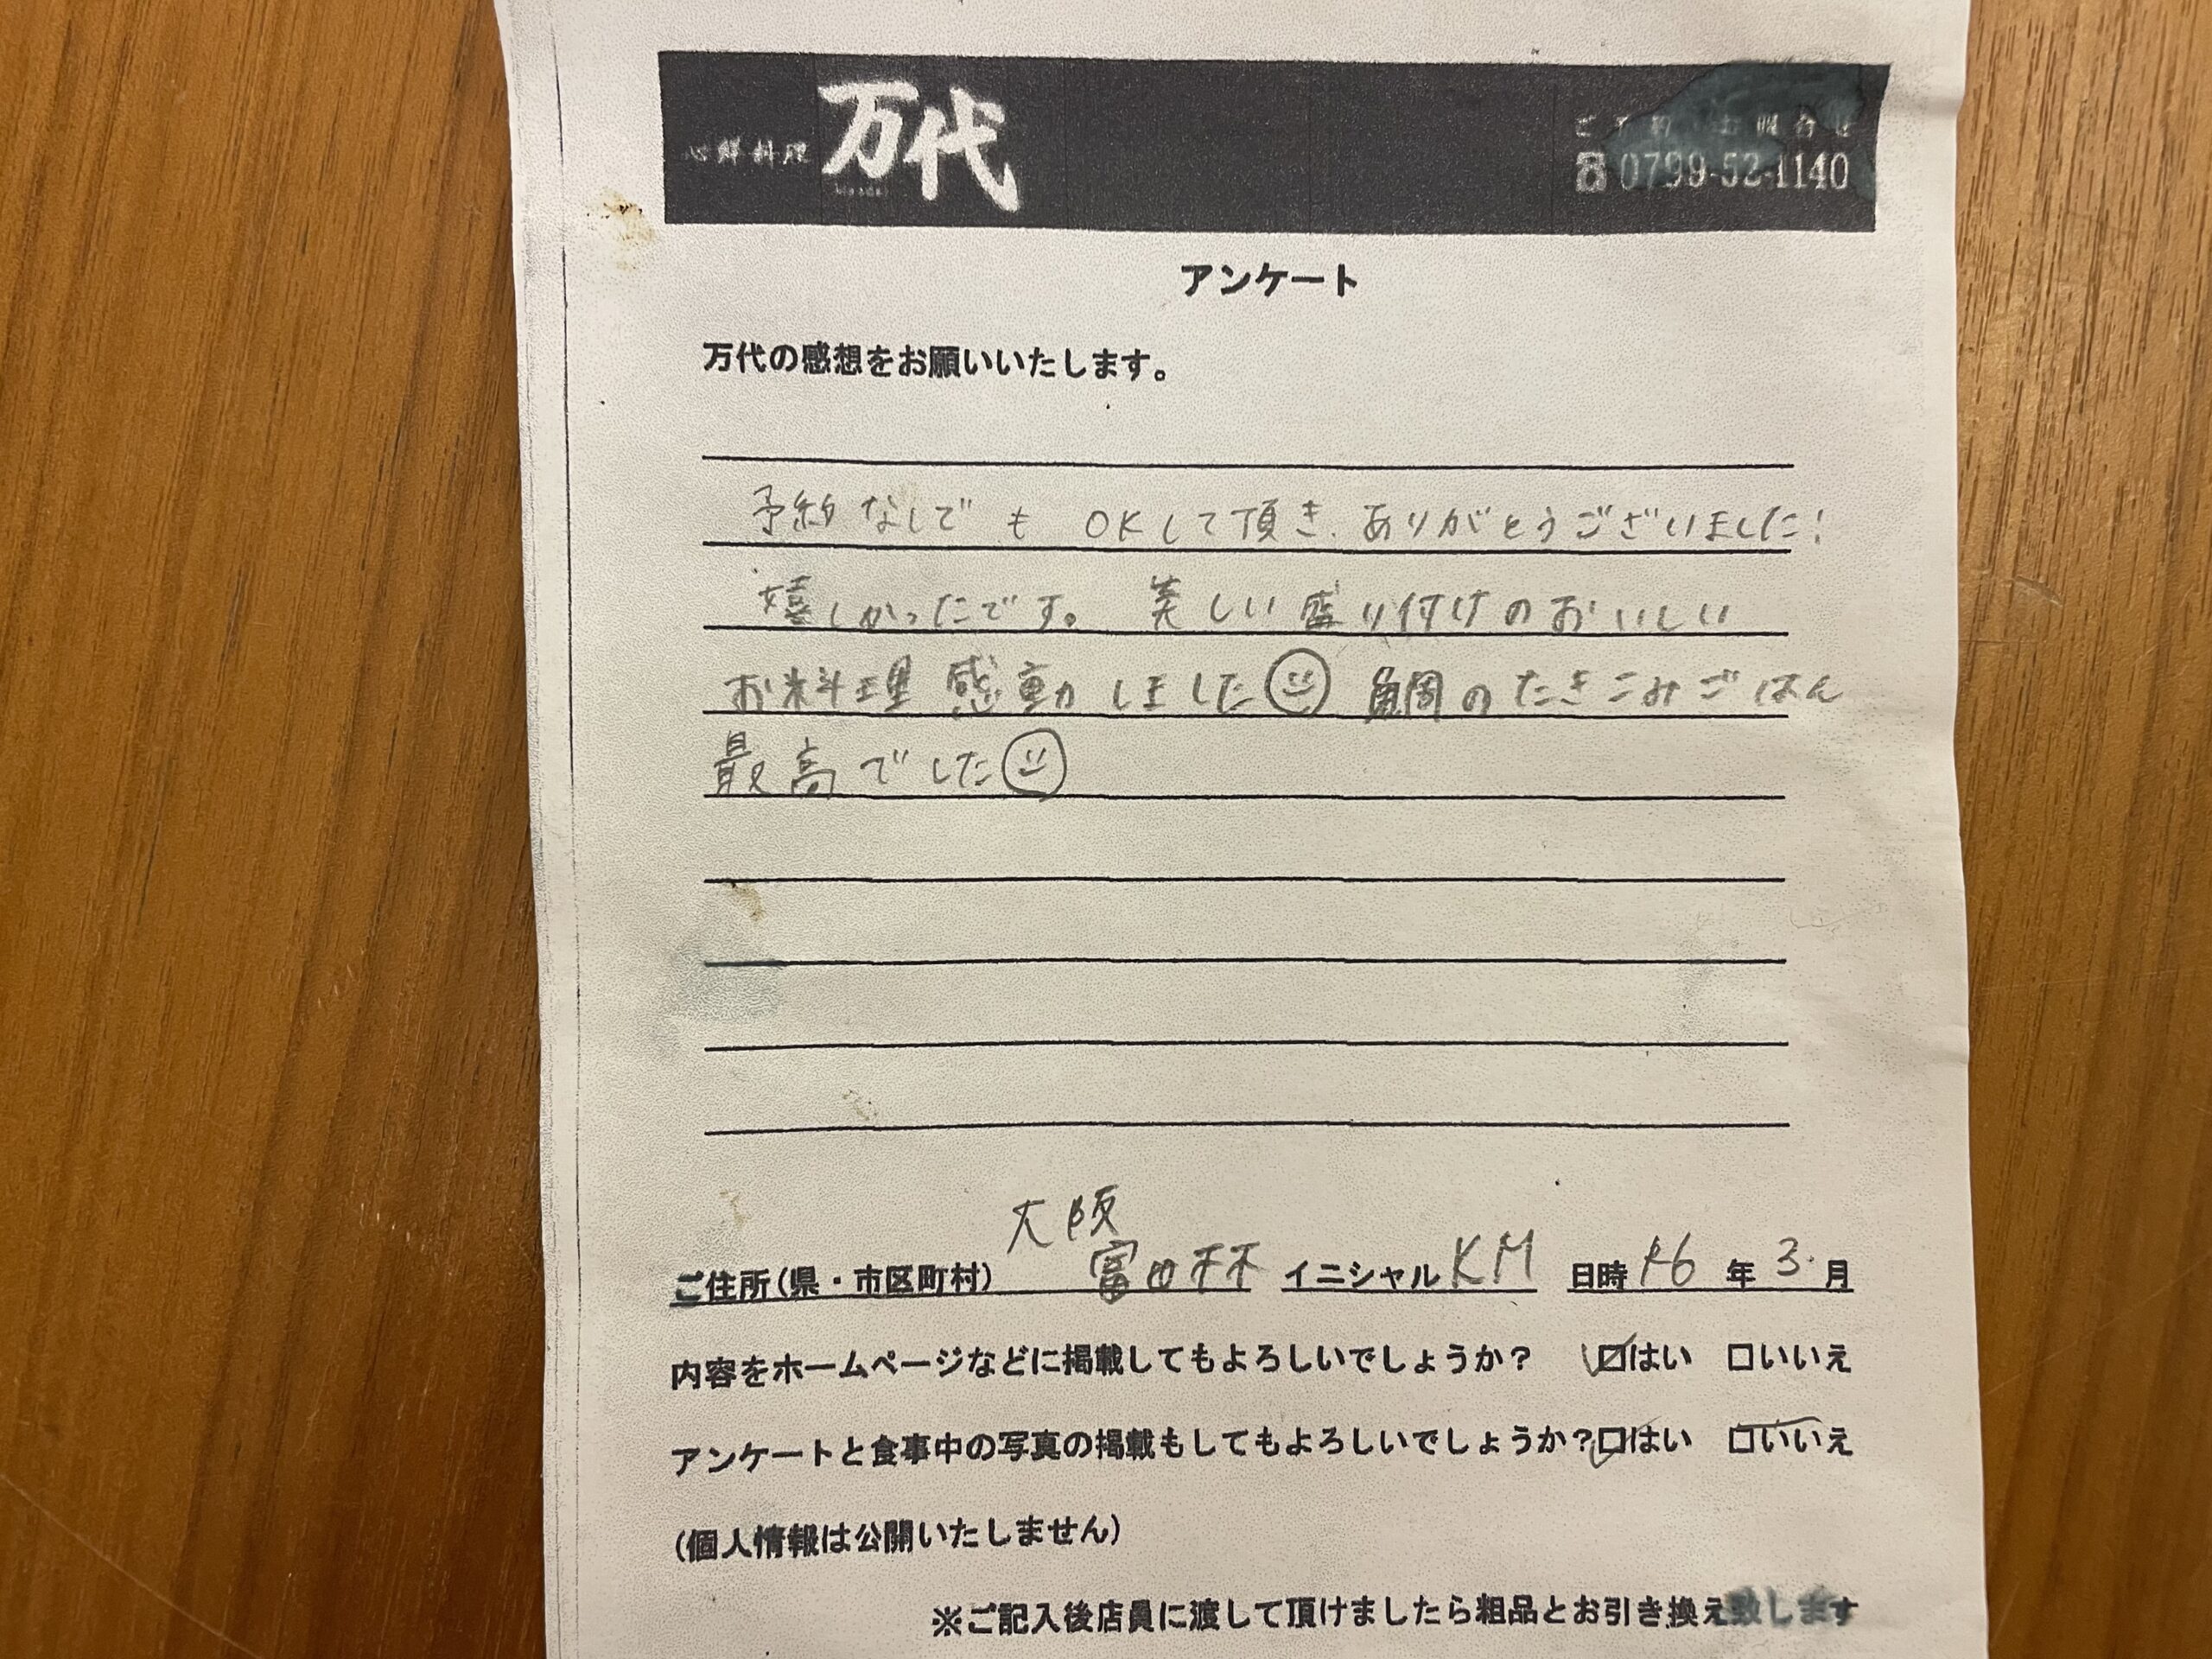 心鮮料理 万代
ご予約・お問合せ
☎0799-52-1140
アンケート
万代の感想をお願いいたします。
予約なしでも OKして頂き、ありがとうございました!
嬉しかったです。 美しい盛り付けのおいしい
お料理 感動しました 鯛のたきこみごはん
最高でした
大阪
ご住所(県・市区町村) 富田林 イニシャル KM 日時 R6 年 3 月
内容をホームページなどに掲載してもよろしいでしょうか? ☑はい □いいえ
アンケートと食事中の写真の掲載もしてもよろしいでしょうか? ☑はい □いいえ
(個人情報は公開いたしません)
※ご記入後店員に渡して頂けましたら粗品とお引き換え致します